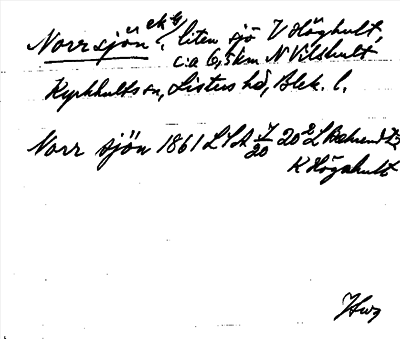 Norrsjön ek 4 , liten sjö V Höghult,
c:a 6,5 km N Vilshult
Kyrkhults sn, Listers hd, Blek. l.
Norr sjön 1861 LSA 7/20 20 2 L
K Högahult